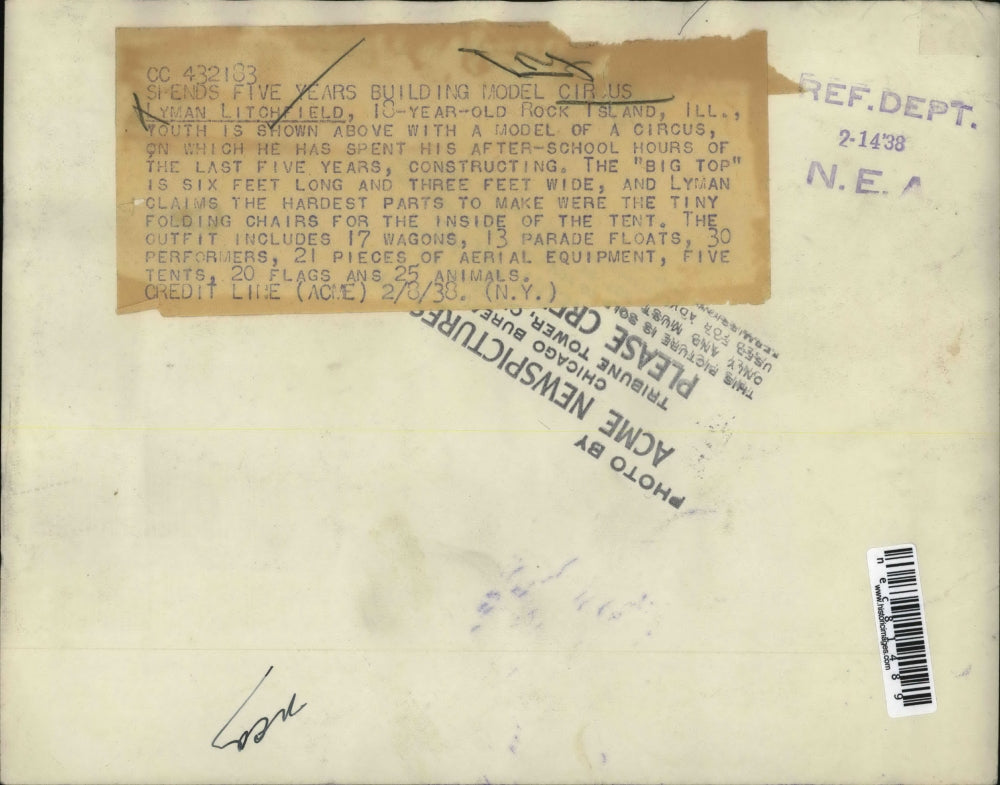 CC 432183
SPENDS FIVE YEARS BUILDING MODEL CIRCUS
LYMAN LITCHFIELD, 18-YEAR-OLD ROCK ISLAND, ILL.,
YOUTH IS SHOWN ABOVE WITH A MODEL OF A CIRCUS,
ON WHICH HE HAS SPENT HIS AFTER-SCHOOL HOURS OF
THE LAST FIVE YEARS, CONSTRUCTING. THE "BIG TOP"
IS SIX FEET LONG AND THREE FEET WIDE, AND LYMAN
CLAIMS THE HARDEST PARTS TO MAKE WERE THE TINY
FOLDING CHAIRS FOR THE INSIDE OF THE TENT. THE
OUTFIT INCLUDES 17 WAGONS, 13 PARADE FLOATS, 30
PERFORMERS, 21 PIECES OF AERIAL EQUIPMENT, FIVE
TENTS, 20 FLAGS ANS 25 ANIMALS.
CREDIT LINE (ACME) 2/8/38. (N.Y.)
REF. DEPT.
2-14'38
N. E. A
PHOTO BY
ACME NEWSPICTURES
CHICAGO
TRIBUNE TOWER,
PLEASE
THIS PICTURE IS
ONLY AND MUST
USED FOR
necl81489
www.historicimages.com